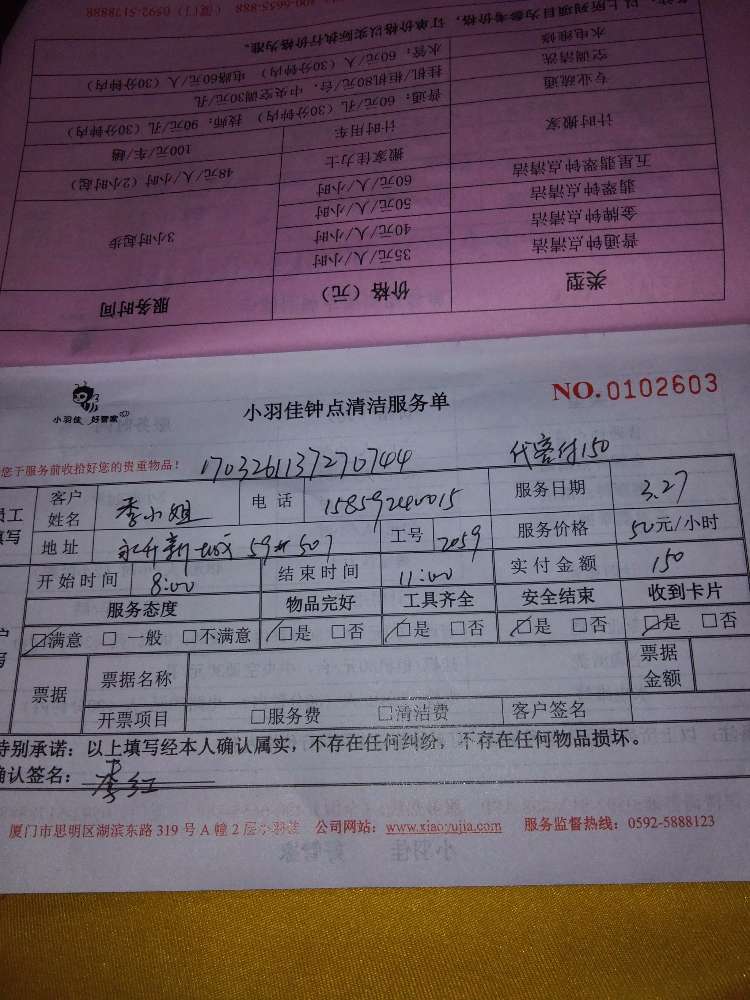 400-5655-888 （厦门）0592-5128888
以上所列项目为参考价格，订单价格以实际执行价格为准。
水电维修 水管：60元/人（30分钟内） 电路60元/人（30分钟内）
空调清洗 挂机/柜机80元/台，中央空调30元/孔
专业疏通 普通：60元/孔（30分钟内） 技师：90元/孔（30分钟内）
计时搬家 计时用车 100元/车/趟
搬家佳力士 48元/人/小时（2小时起）
五星翡翠钟点清洁 60元/人/小时
翡翠钟点清洁 50元/人/小时 3小时起步
金牌钟点清洁 40元/人/小时
普通钟点清洁 35元/人/小时
类型 价格（元） 服务时间
小羽佳 好管家
小羽佳钟点清洁服务单
NO.0102603
您于服务前收拾好您的贵重物品！
17032611372770744
代客付150
员工填写
客户姓名 季小姐 电话 15859240015 服务日期 3.27
地址 59# 507 工号 2059 服务价格 50元/小时
开始时间 8:00 结束时间 11:00 实付金额 150
服务态度 物品完好 工具齐全 安全结束 收到卡片
☑满意 □一般 □不满意 ☑是 □否 ☑是 □否 ☑是 □否 ☑是 □否
票据 票据名称 票据金额
开票项目 □服务费 □清洁费 客户签名
特别承诺：以上填写经本人确认属实，不存在任何纠纷，不存在任何物品损坏。
确认签名：李红
厦门市思明区湖滨东路 319 号 A 幢 2 层小羽佳 公司网站：www.xiaoyujia.com 服务监督热线：0592-5888123